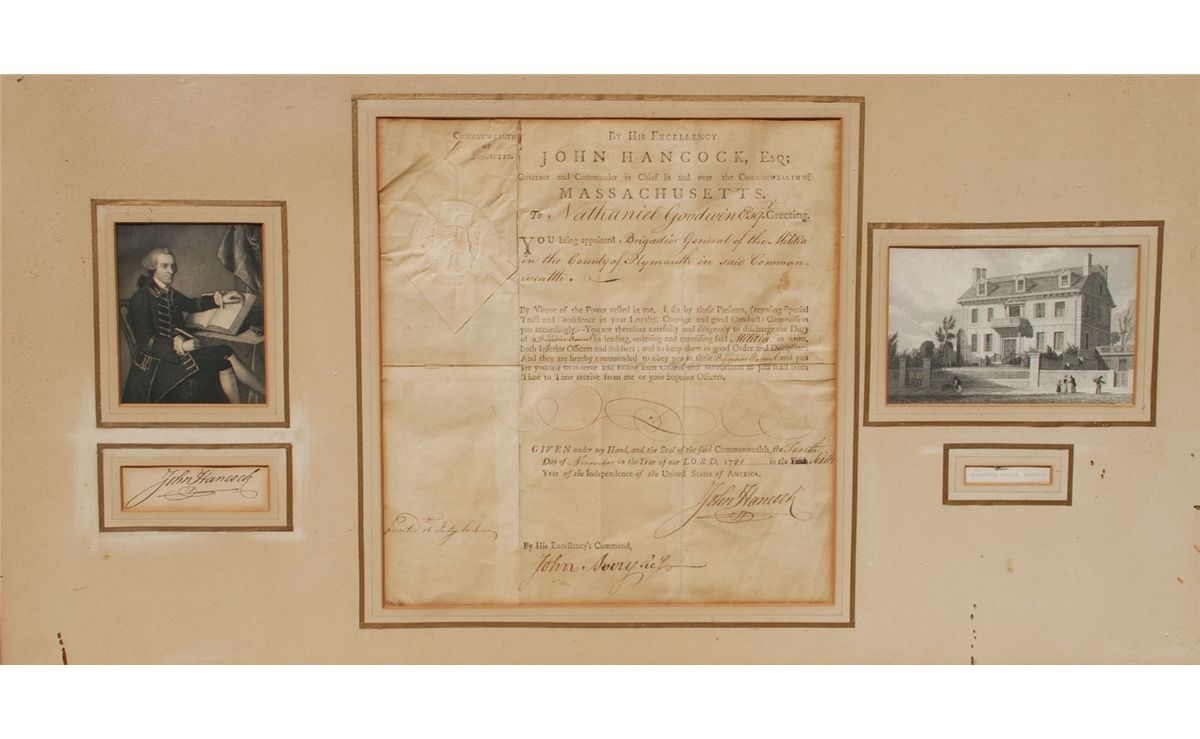 COMMONWEALTH
OF
BY HIS EXCELLENCY
JOHN HANCOCK, ESQ;
Governor and Commander in Chief in and over the COMMONWEALTH of
MASSACHUSETTS.
To Nathaniel Goodwin Esqr. Greeting.
YOU being appointed Brigadier General of the Militia
in the County of Plymouth in said Common-
wealth.
By Virtue of the Power vested in me, I do by these Presents, (reposing Special
Trust and Confidence in your Loyalty, Courage and good Conduct) Commission
you accordingly.—You are therefore carefully and diligently to discharge the Duty
of a Brigadier General in leading, ordering and exercising said Militia in Arms,
both Inferior Officers and Soldiers; and to keep them in good Order and Discipline:
And they are hereby commanded to obey you as their Brigadier General and you
are yourself to observe and follow such Orders and Instructions as you shall from
Time to Time receive from me or your Superior Officers.
GIVEN under my Hand, and the Seal of the said Commonwealth, the Tenth
Day of November in the Year of our LORD, 1781 in the Sixth
Year of the Independence of the United States of AMERICA.
John Hancock
By His Excellency's Command,
John Avery Secy
John Hancock